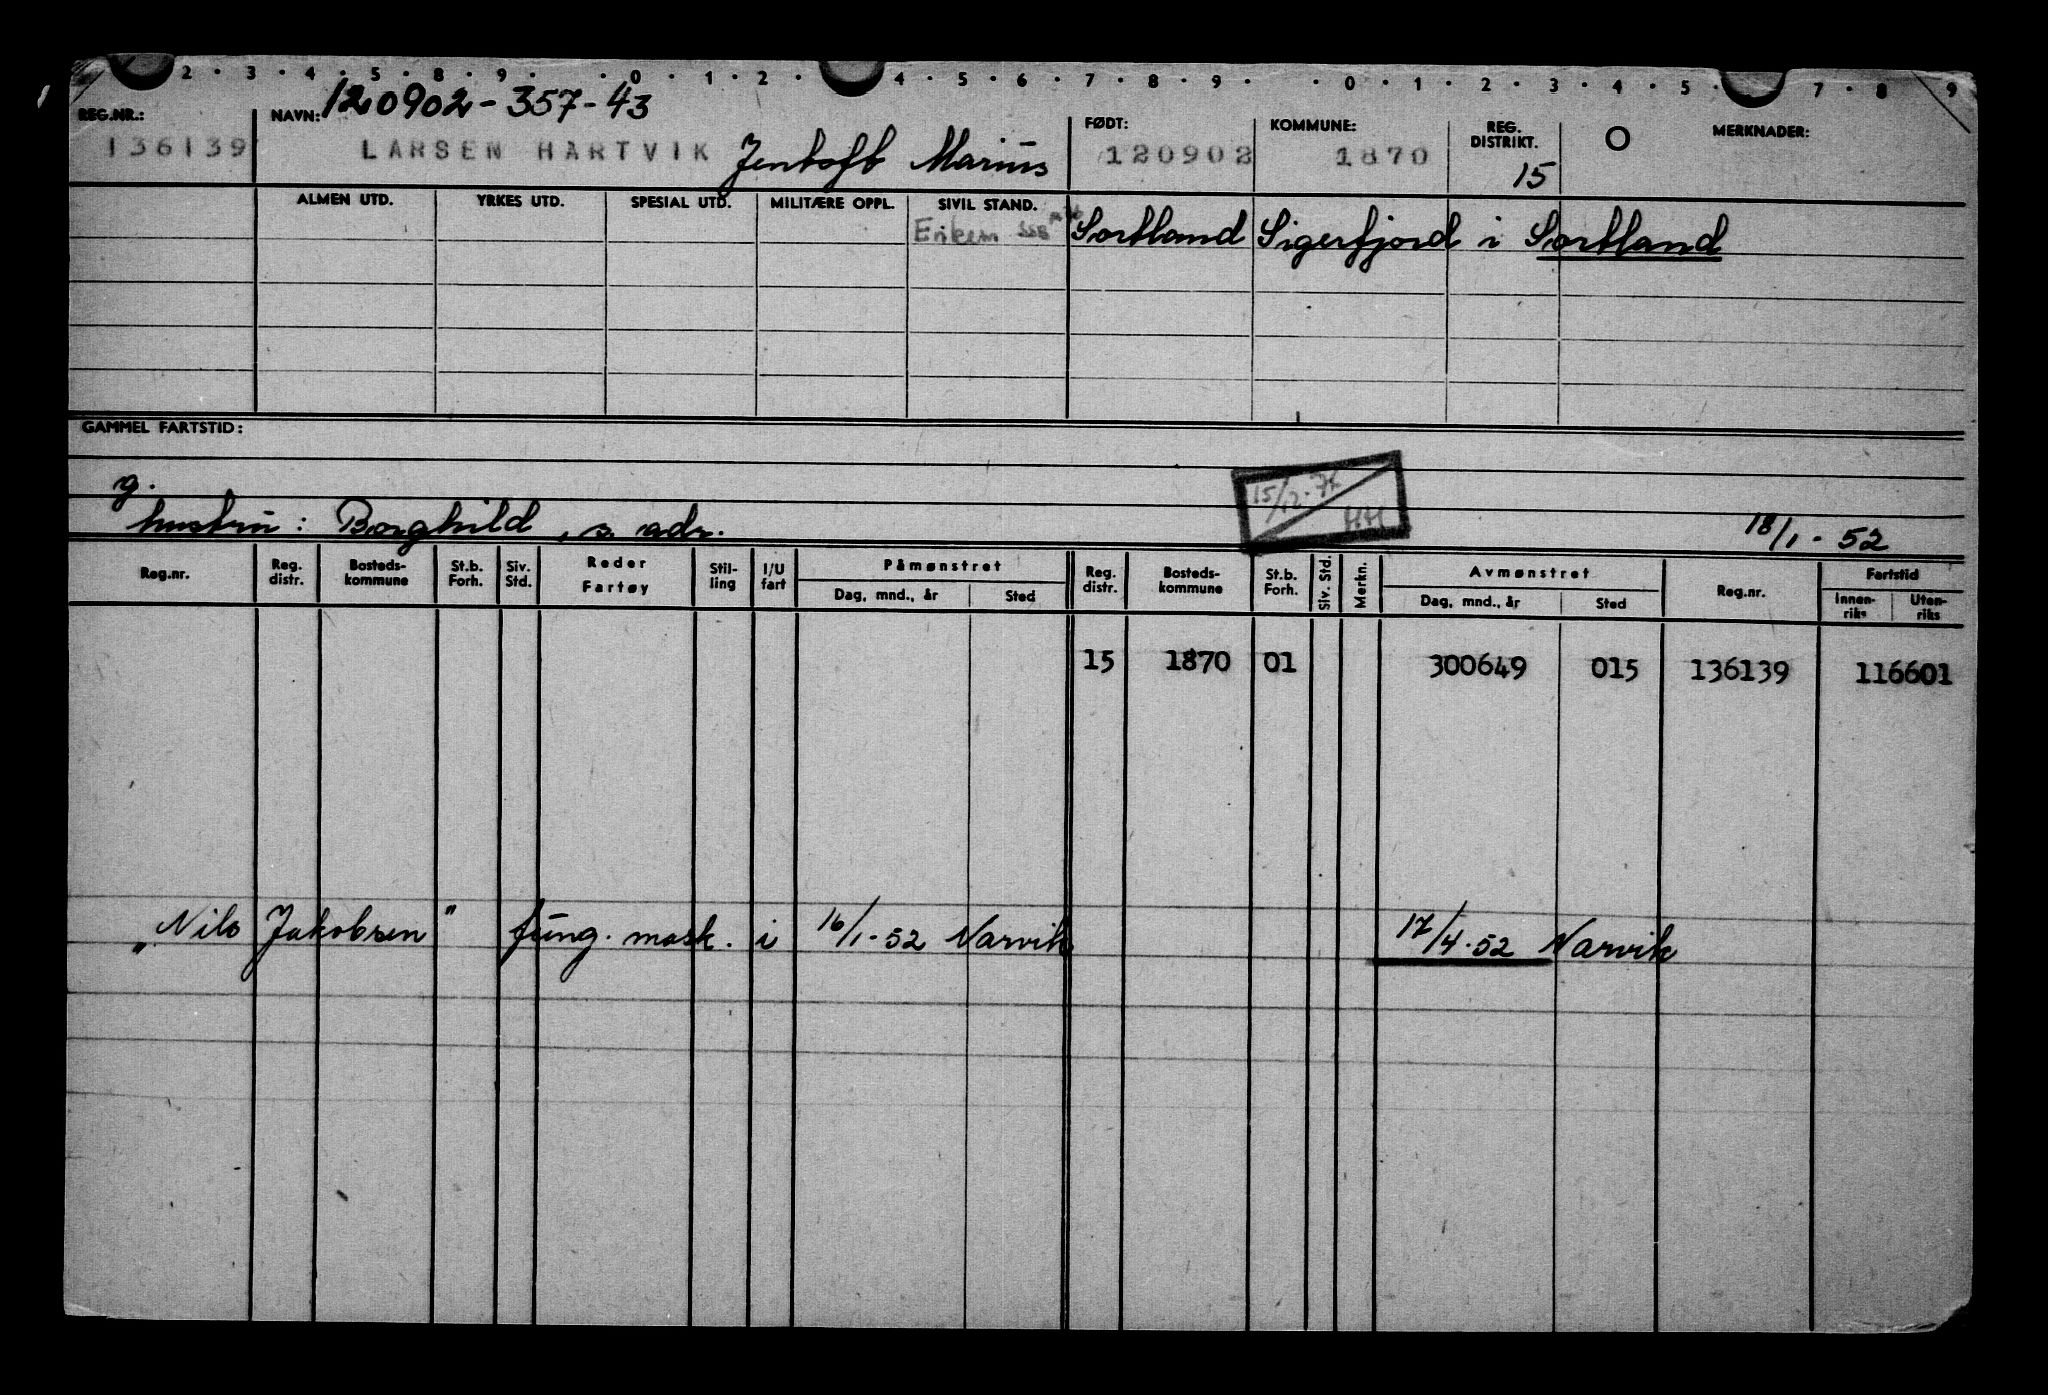 2 · 3 · 4 · 5 · 8 · 9 · · 0 · 1 · 2 · 4 · 5 · 6 · 7 · 8 · 9 · · 0 · 1 · 2 · 3 · 4 · 5 · 7 · 8 9
REG.NR.: NAVN: 120902-357-43 FØDT: KOMMUNE: REG. DISTRIKT. O MERKNADER:
136139 LARSEN HARTVIK Jentoft Marius 120902 1870 15
ALMEN UTD. YRKES UTD. SPESIAL UTD. MILITÆRE OPPL. SIVIL STAND.
SSB Sortland Sigerfjord i Sortland
GAMMEL FARTSTID:
g.
hustru: Borghild, s. adr. 18/1-52
15/12-72
HH
Reg.nr. Reg. distr. Bosteds-kommune St.b. Forh. Siv. Std. Reder Fartøy Stil-ling I/U fart Påmønstret Dag, mnd., år Sted Reg. distr. Bosteds-kommune St.b. Forh. Siv. Std. Merkn. Avmønstret Dag, mnd., år Sted Reg.nr. Fartstid Innen-riks Uten-riks
15 1870 01 300649 015 136139 116601
"Nils Jakobsen" fung. mask. i 16/1-52 Narvik 17/4-52 Narvik